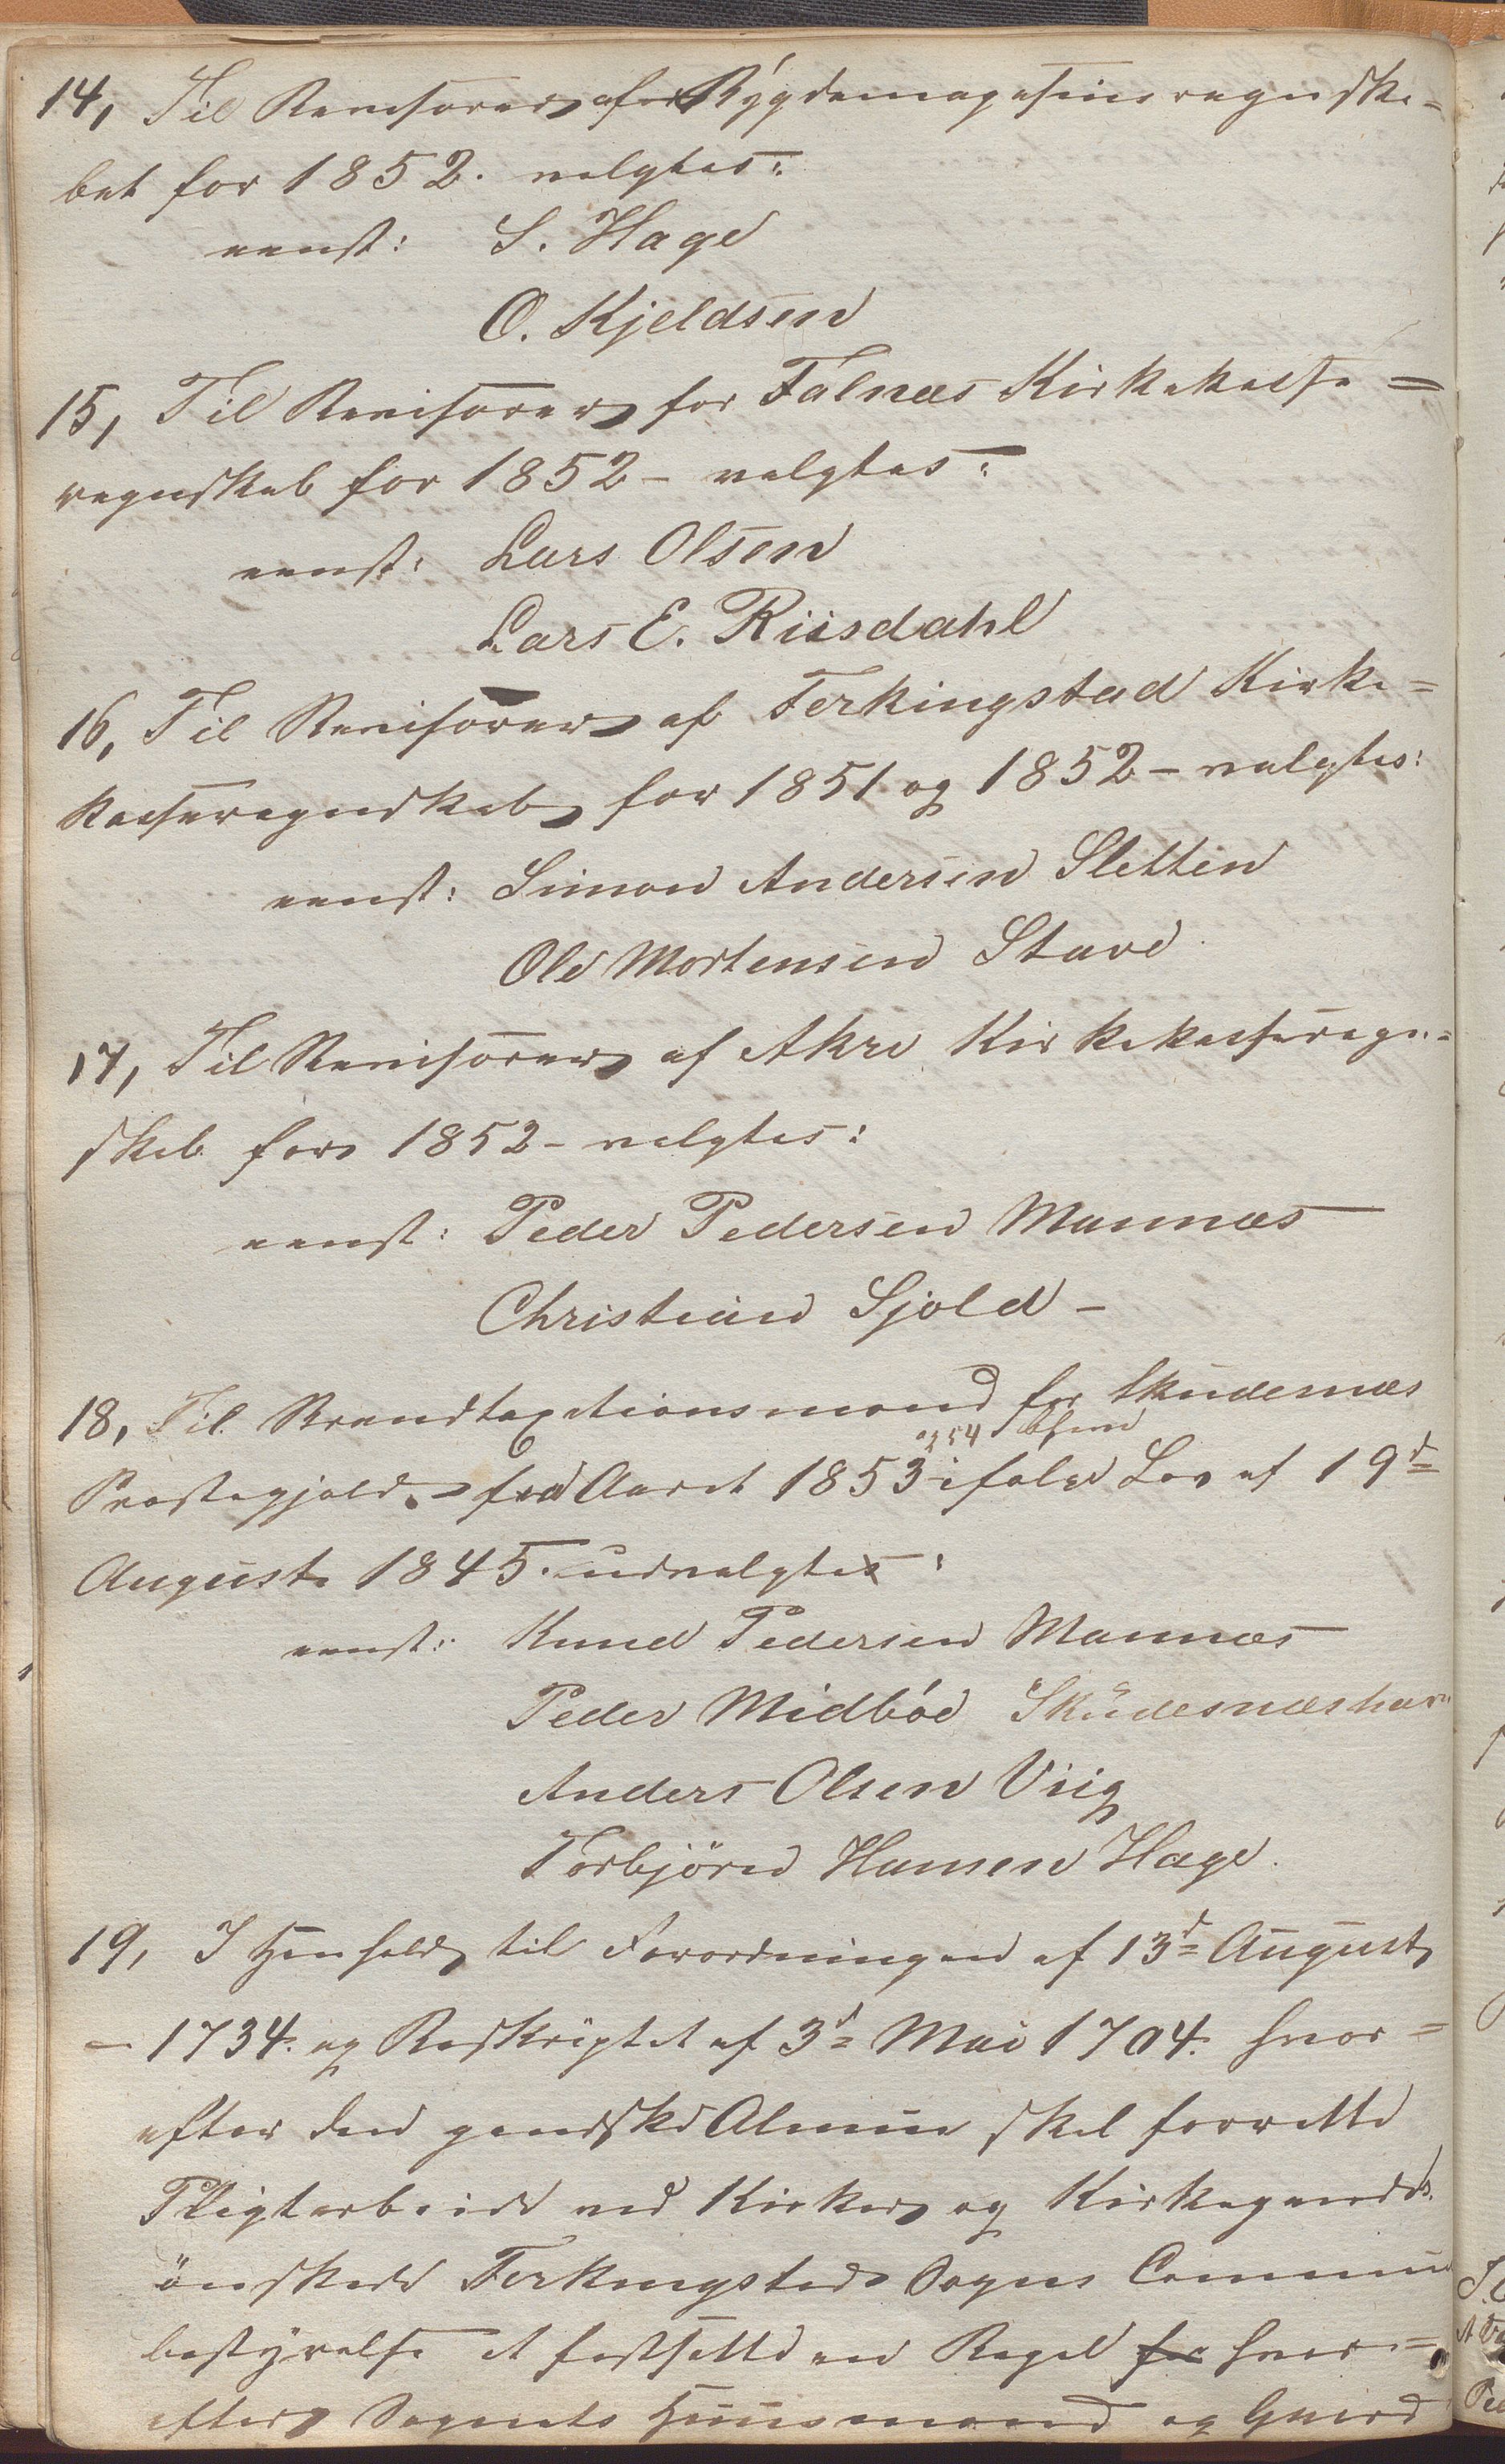 14, Til Revisorer af Bygdemagasinsregnska=
bet for 1852. valgtes:
eenst: S. Hage
O. Kjeldsen
15, Til Revisorer for Falnæs Kirkekasse=
regnskab for 1852 - valgtes:
eenst: Lars Olsen
Lars E. Riisdahl
16, Til Revisorer af Ferkingstad Kirke=
kasseregnskab for 1851 og 1852 - valgtes:
eenst: Simon Andersen Sletten
Ole Mortensen Stave
17, Til Revisorer af Akre Kirkekasseregn=
skab for 1852 - valgtes:
eenst: Peder Pedersen Mannæs
Christian Sjold -
18, Til Brandtaxationsmænd for Skudesnæs
og 54
Præstegjeld for Aaret 1853 ifølge Lov af 19d=
August 1845. udvalgtes:
eenst: Knud Pedersen Mannæs
Peder Midböe Skudesnæshavn
Anders Olsen Viig
Torbjörn Hansen Hage.
19, I Henhold til Forordningen af 13d= August
- 1734. og Reskriptet af 3d= Mai 1704. hvor=
efter den gandske Almue skal forrette
Pligtarbeide ved Kirker og Kirkegaarde
önskede Ferkingstad Sogns Commune
bestyrelse at fastsætte en Regel for hvor=
efter Sognets Huusmænd og Gaard